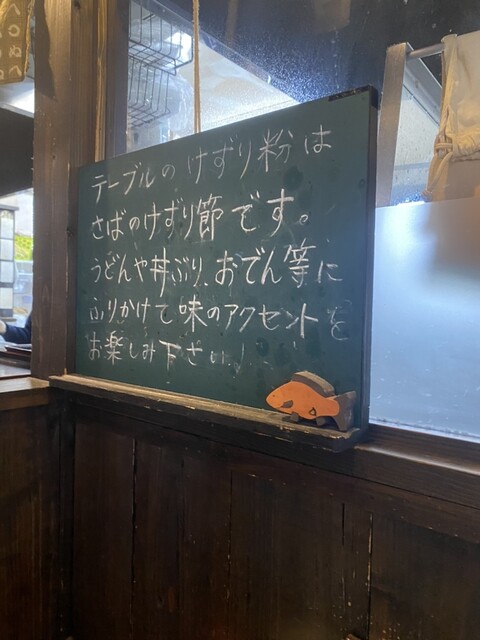 テーブルのけずり粉は
さばのけずり節です。
うどんや丼ぶり、おでん等に
ふりかけて味のアクセントを
お楽しみ下さい!